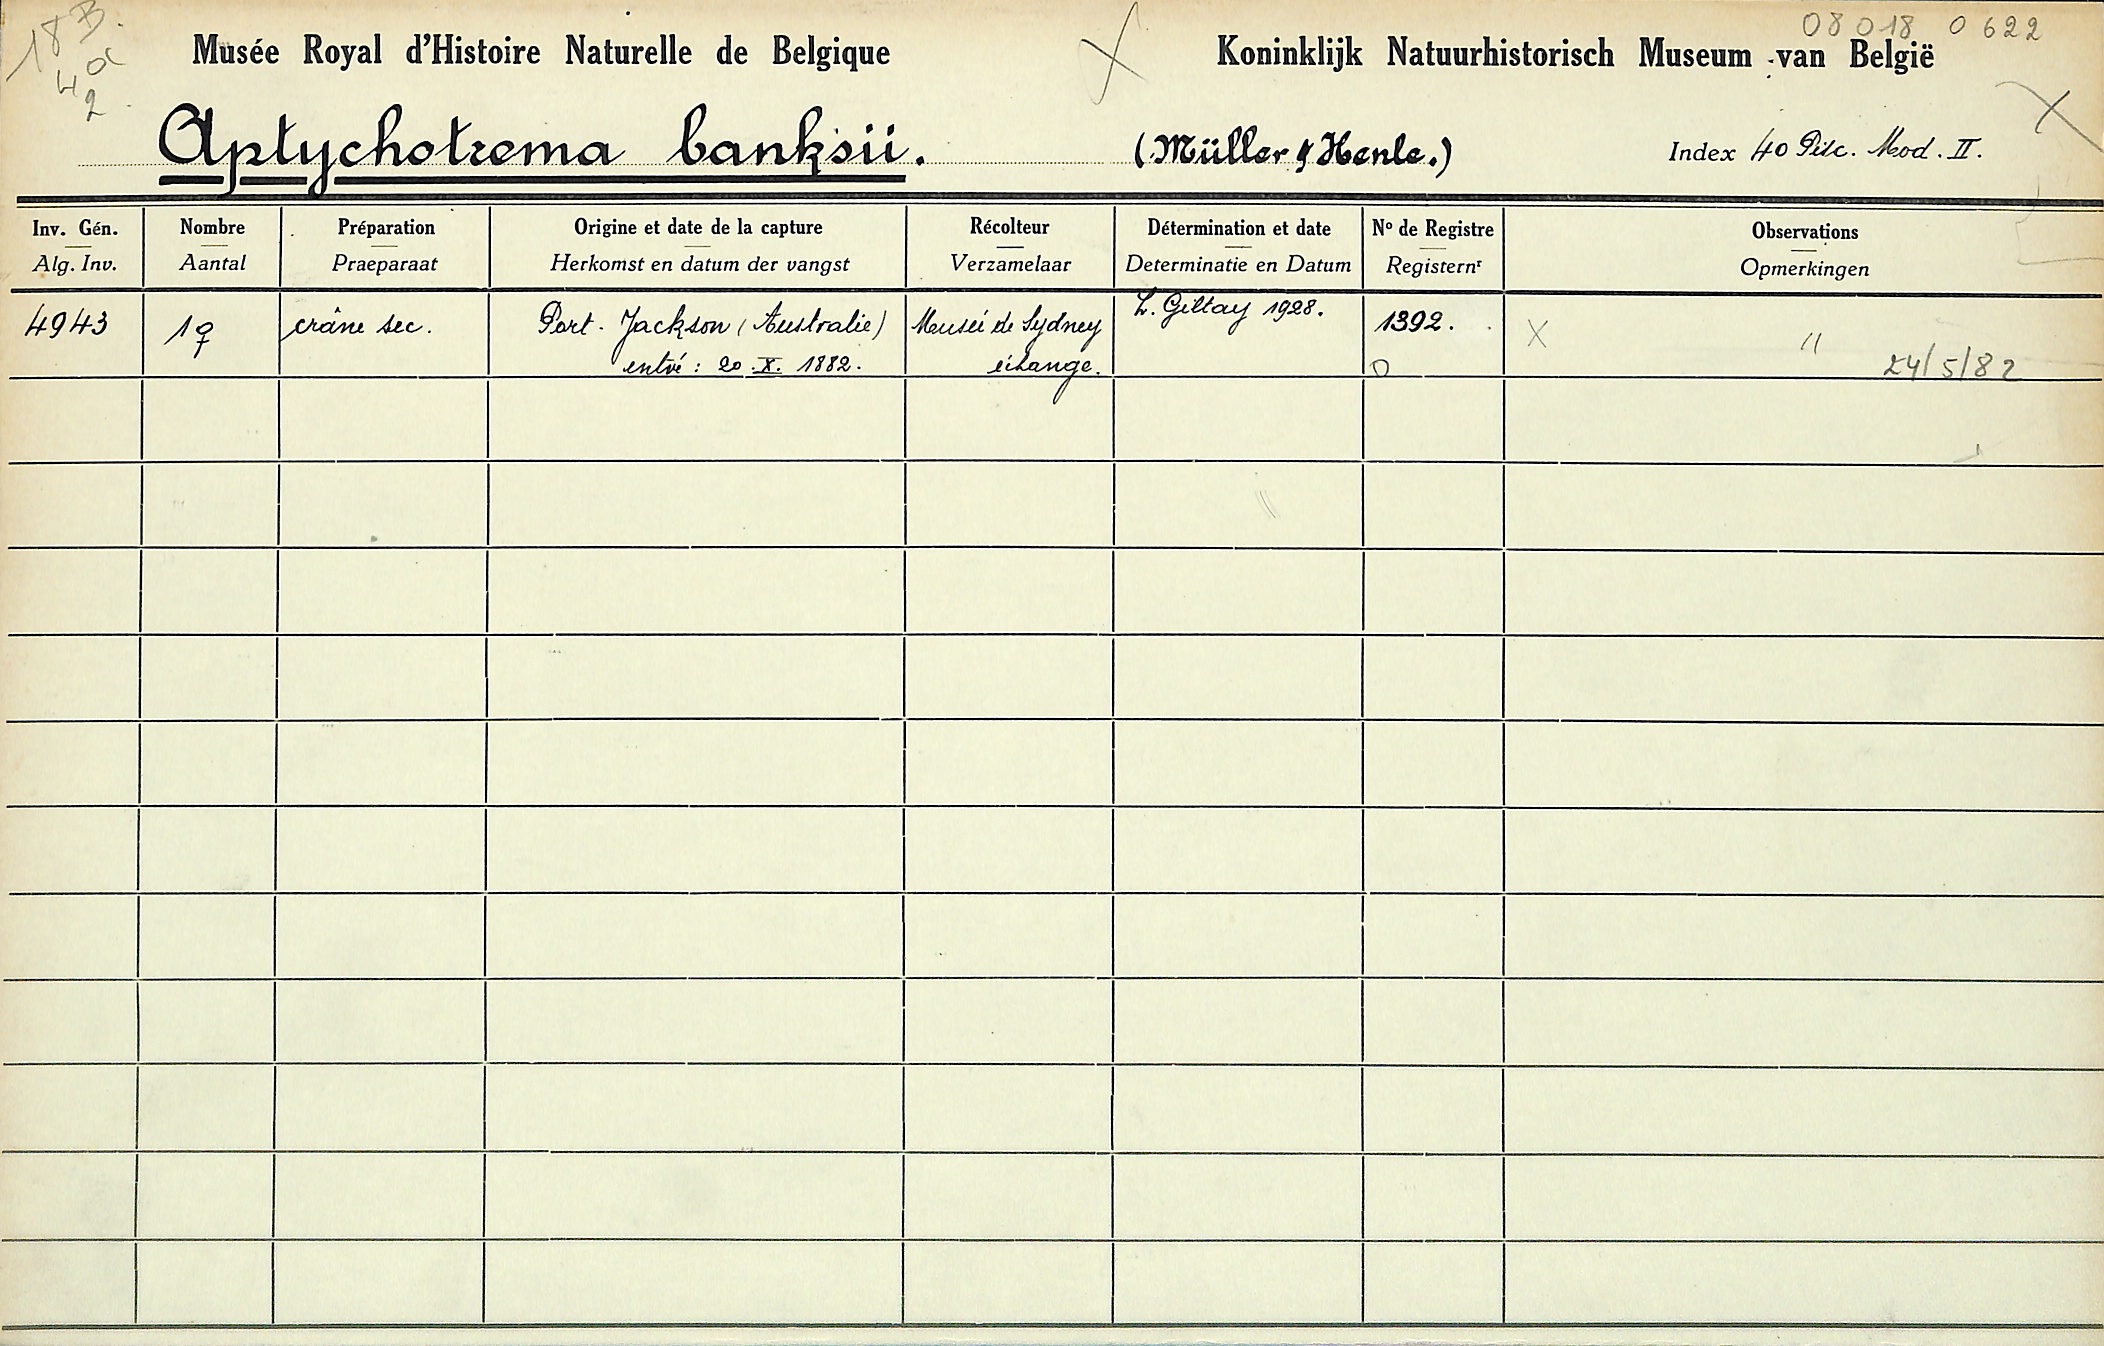 18 B.
08018 0622
Musée Royal d'Histoire Naturelle de Belgique
Koninklijk Natuurhistorisch Museum van België
Aptychotrema banksii. (Müller & Henle.) Index 40 Pisc. Mod. II.
Inv. Gén. Nombre Préparation Origine et date de la capture Récolteur Détermination et date Nº de Registre Observations
Alg. Inv. Aantal Praeparaat Herkomst en datum der vangst Verzamelaar Determinatie en Datum Registernr Opmerkingen
4943 1♀ crâne sec. Port. Jackson (Australie) Musée de Sydney L. Giltay 1928. 1392. X "
entré : 20.X. 1882. échange. 24/5/82